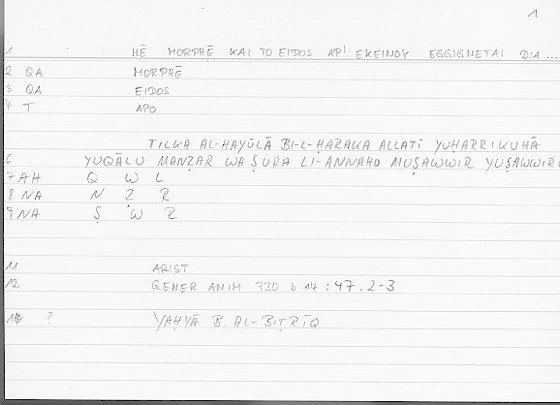 1
1 HĒ MORPHĒ KAI TO EIDOS AP' EKEINOY EGGIGNETAI DIA ...
2 QA MORPHĒ
3 QA EIDOS
4 T APO
TILKA AL-HAYŪLĀ BI-L-ḤARAKA ALLATĪ YUḤARRIKUHĀ
6 YUQĀLU MANẒAR WA ṢŪRA LI-ANNAHO MUṢAWWIR YUṢAWWIRU
7 AH Q W L
8 NA N Ẓ R
9 NA Ṣ W R
11 ARIST
12 GENER ANIM 730 b 14 : 47.2-3
? YAḤYĀ B. AL-BIṬRĪQ